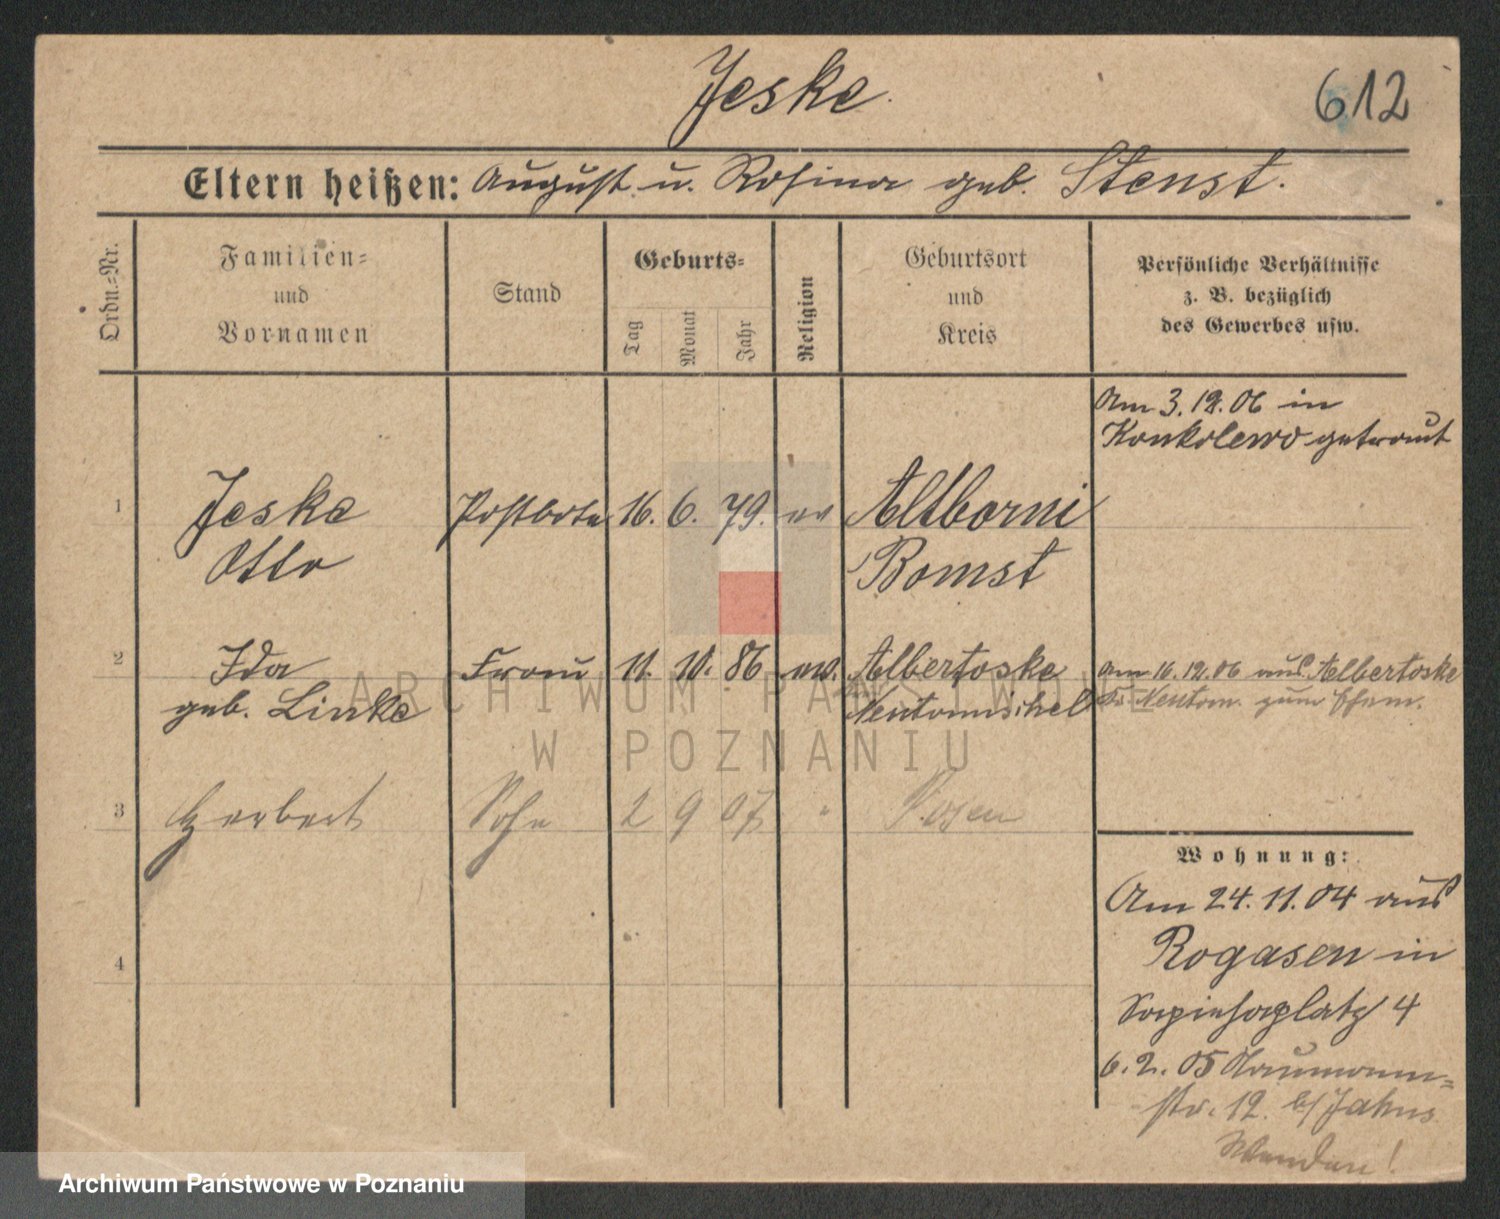 Jeske.
612
Eltern heißen: August u. Rosina geb. Stenst.
Ordn.-Nr.
Familien-
und
Vornamen
Stand
Geburts-
Tag
Monat
Jahr
Religion
Geburtsort
und
Kreis
Persönliche Verhältnisse
z. B. bezüglich
des Gewerbes usw.
Am 3.12.06 in
Konkolewo getraut
1 Jeske Postbote 16. 6. 79. ev Altborui
Otto Bomst
2 Ida Frau 11. 10. 86 ev. Albertoske am 16.12.06 aus Albertoske
geb. Linke Neutomischel Kr. Neutom. zum Ehem.
3 Herbert Sohn 2 9 07 " Posen
Wohnung:
Am 24.11.04 aus
Rogasen in
4
Sapiehaplatz 4
6.2.05 Naumann-
str. 12. b/ Jahns
Wenden!
ARCHIWUM PAŃSTWOWE
W POZNANIU
Archiwum Państwowe w Poznaniu